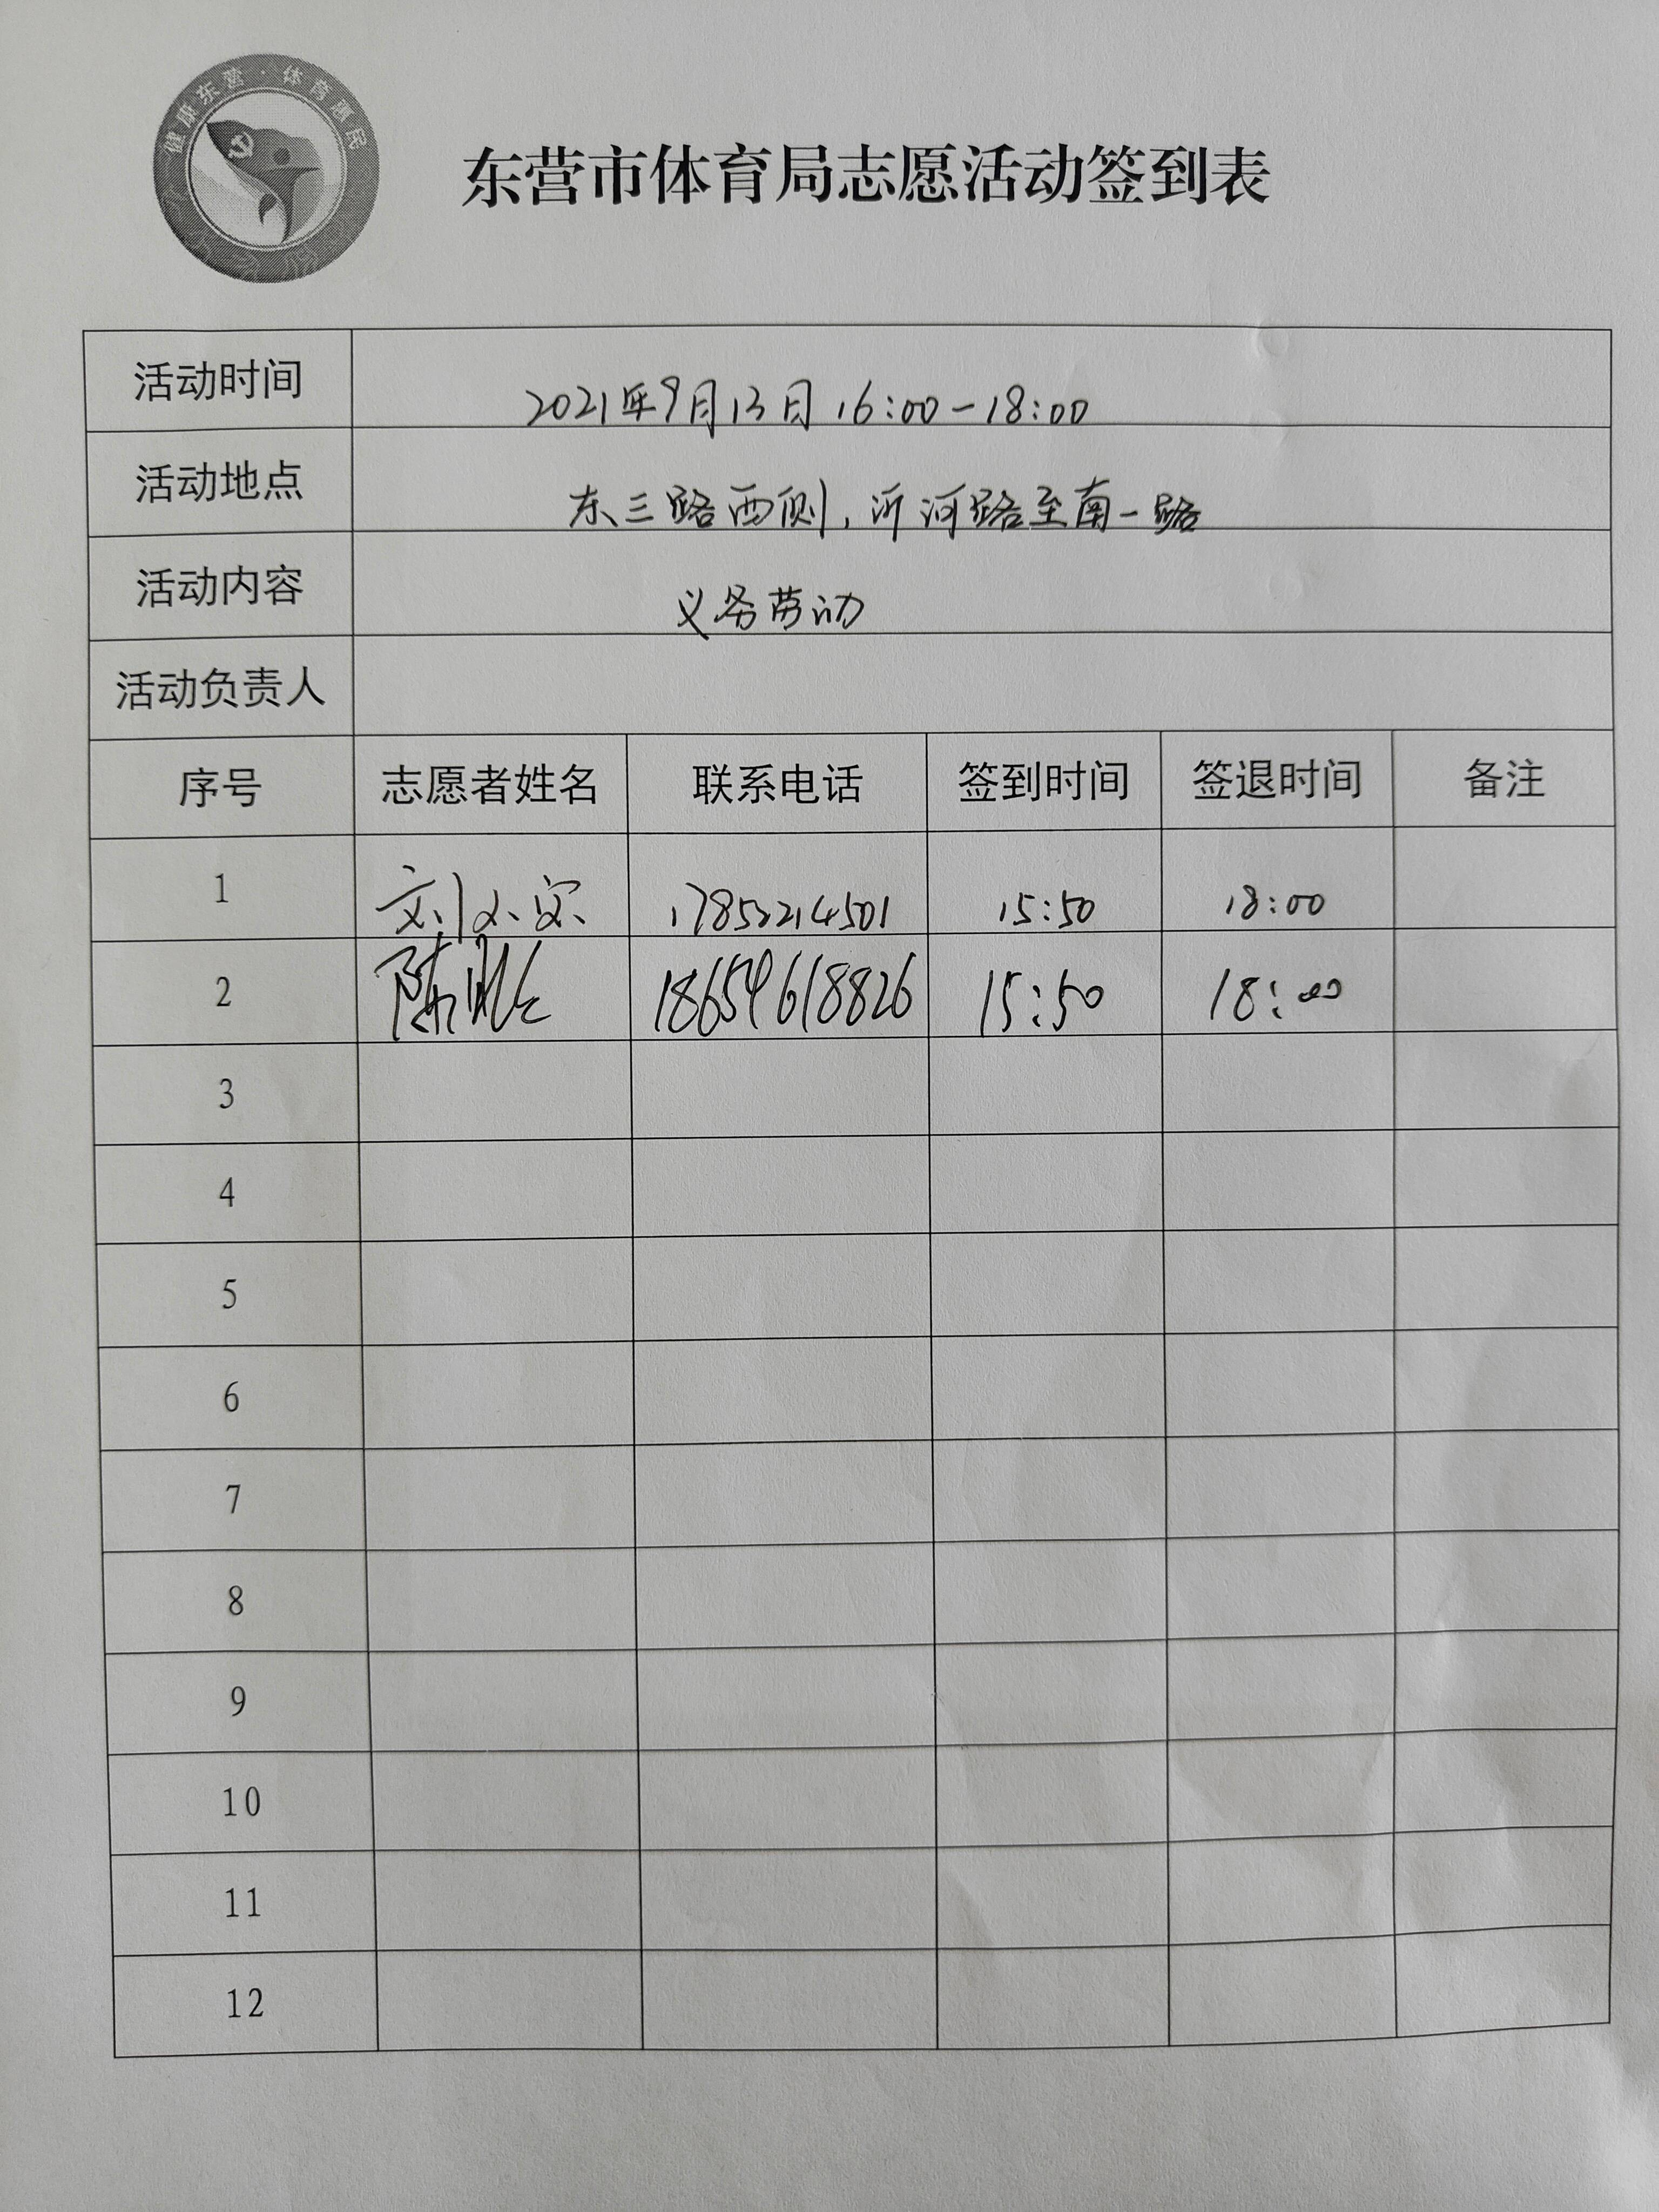 健康东营·体育惠民
东营市体育局志愿活动签到表
活动时间 2021年9月13日 16:00-18:00
活动地点 东三路西侧,沂河路至南一路
活动内容 义务劳动
活动负责人
序号 志愿者姓名 联系电话 签到时间 签退时间 备注
1 刘 15:50 18:00
2 陈 18659618826 15:50 18:00
3
4
5
6
7
8
9
10
11
12